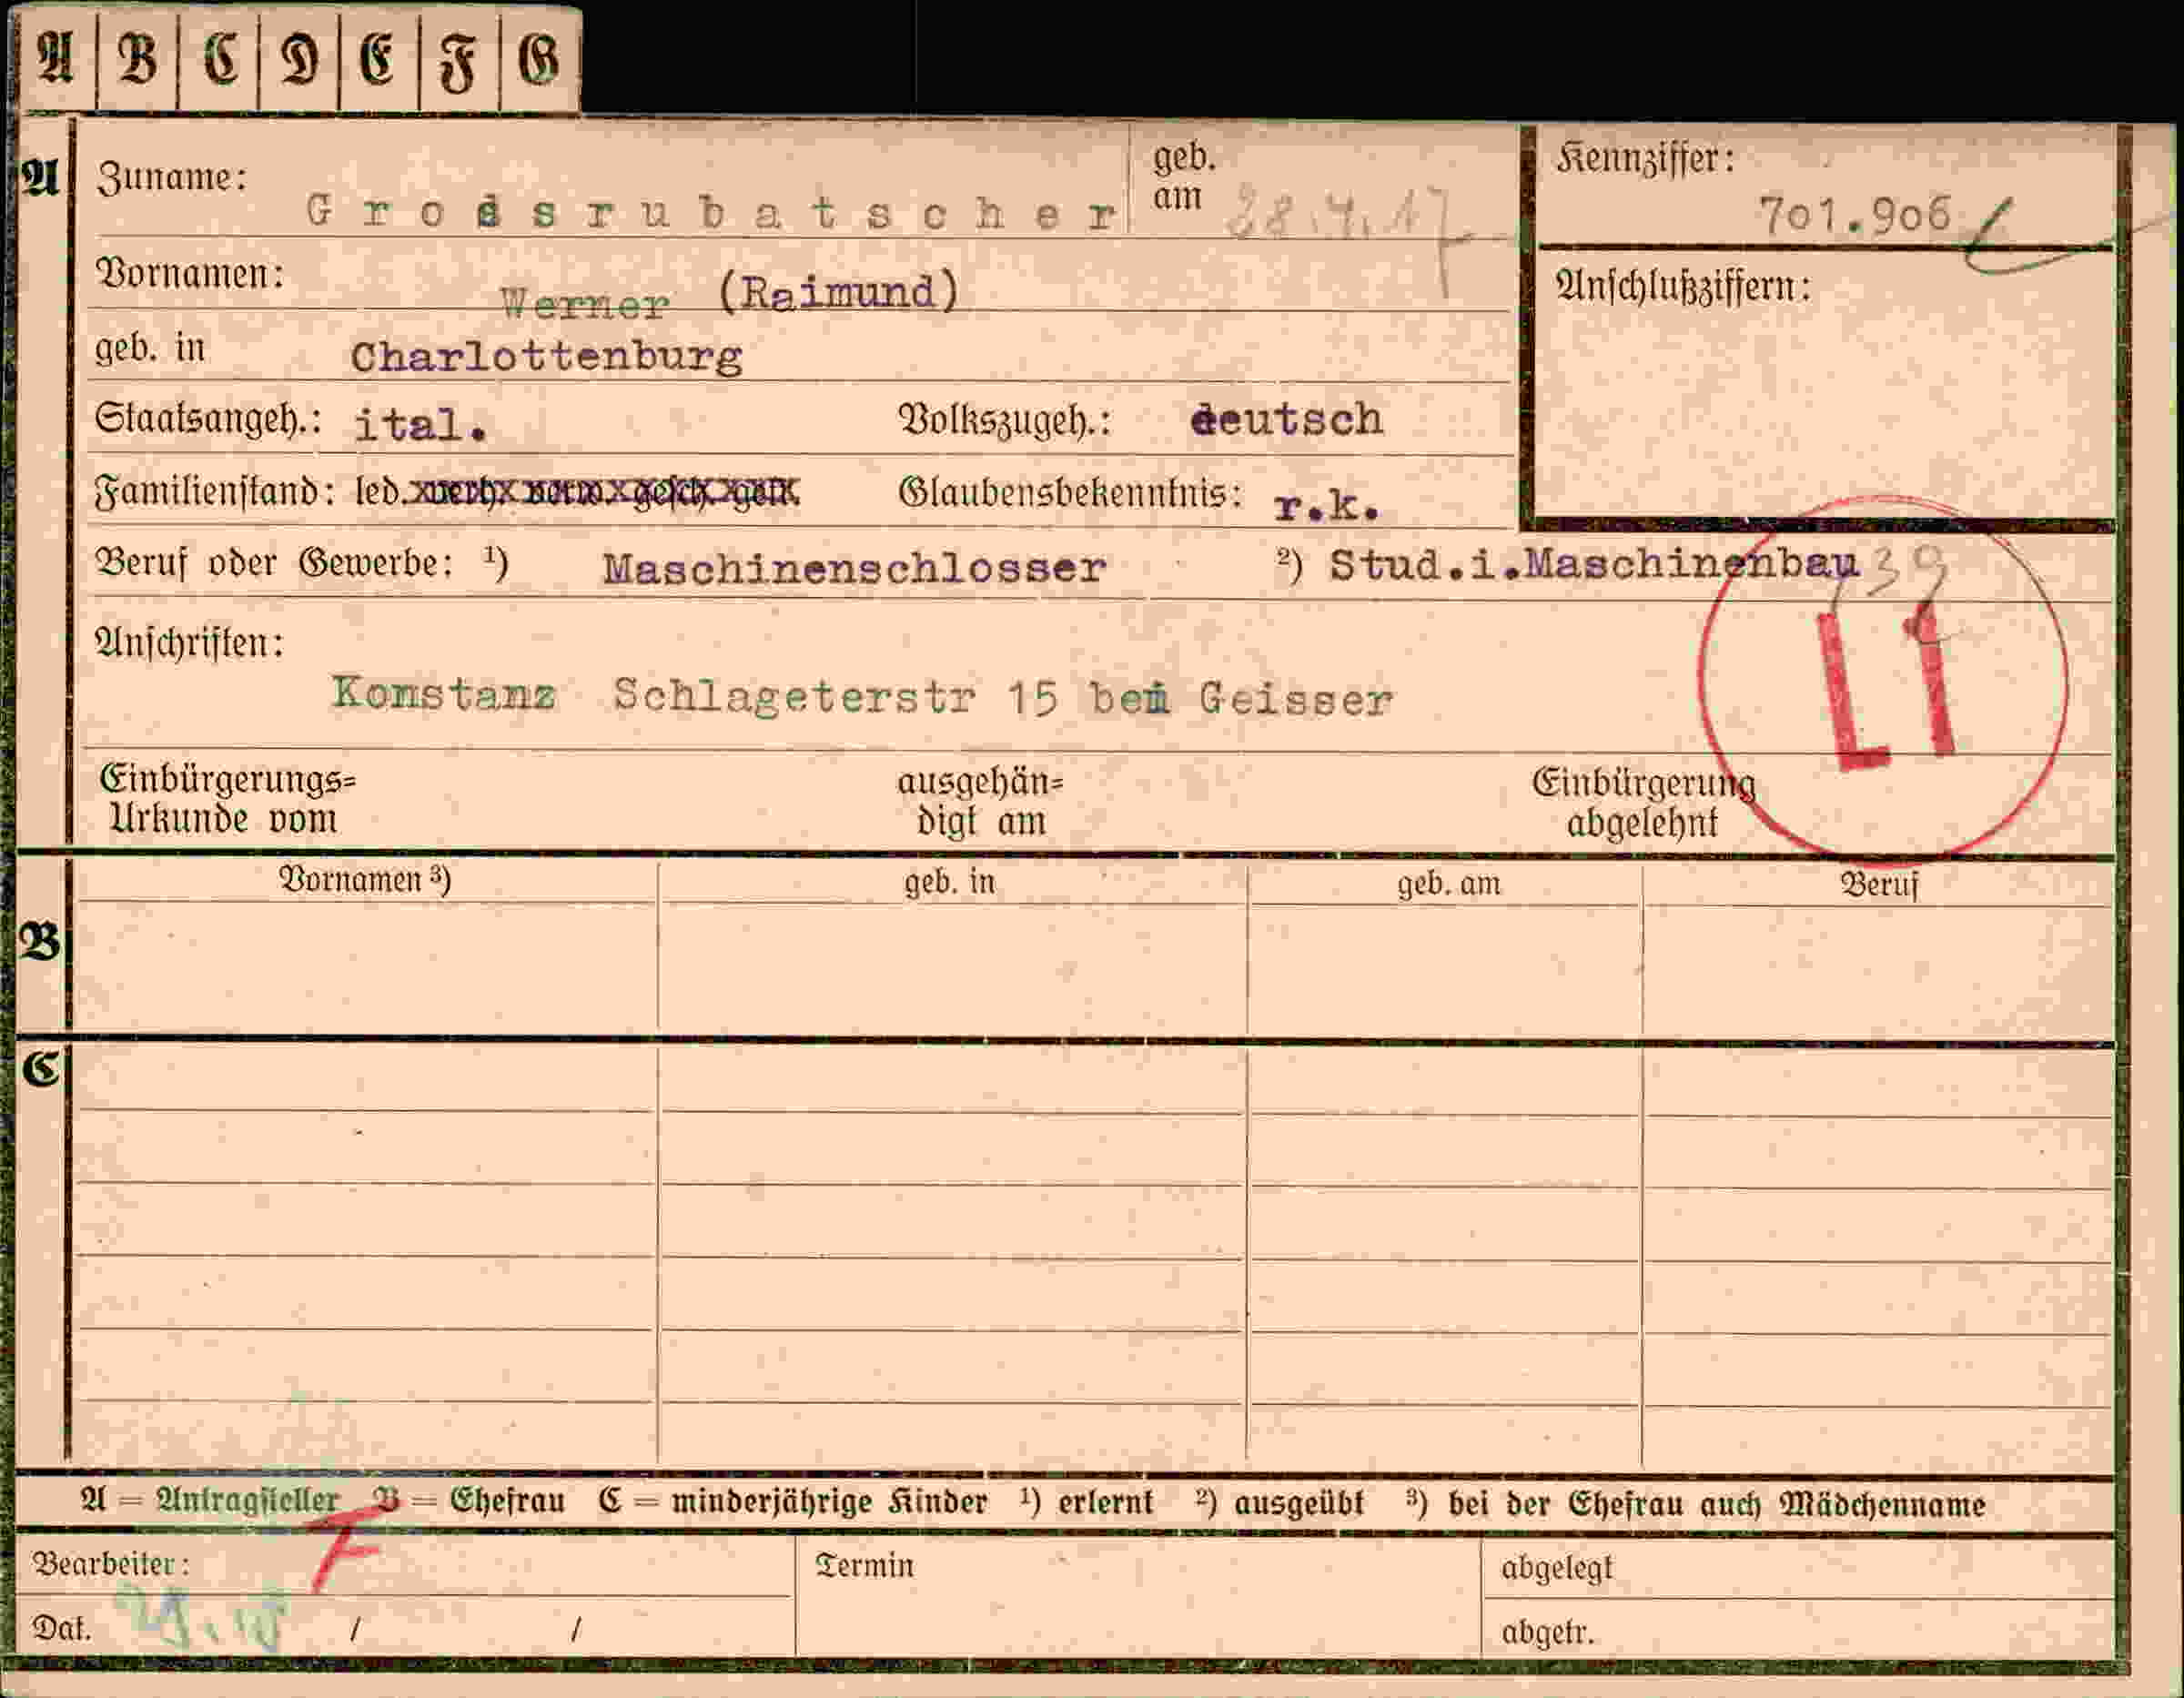 A B C D E F G
A Zuname: Grodsrubatscher geb. am 28.4.17 Kennziffer: 701.906
Vornamen: Werner (Raimund) Anschlußziffern:
geb. in Charlottenburg
Staatsangeh.: ital. Volkszugeh.: deutsch
Familienstand: led. verh. verw. gesch. getr. Glaubensbekenntnis: r.k.
Beruf oder Gewerbe: ¹) Maschinenschlosser ²) Stud.i.Maschinenbau 39
L1
Anschriften:
Konstanz Schlageterstr 15 bei Geisser
Einbürgerungs= ausgehän= Einbürgerung
Urkunde vom digt am abgelehnt
Vornamen ³) geb. in geb. am Beruf
B
C
A = Antragsteller B = Ehefrau C = minderjährige Kinder ¹) erlernt ²) ausgeübt ³) bei der Ehefrau auch Mädchenname
Bearbeiter: F Termin abgelegt
Dat. / / abgetr.